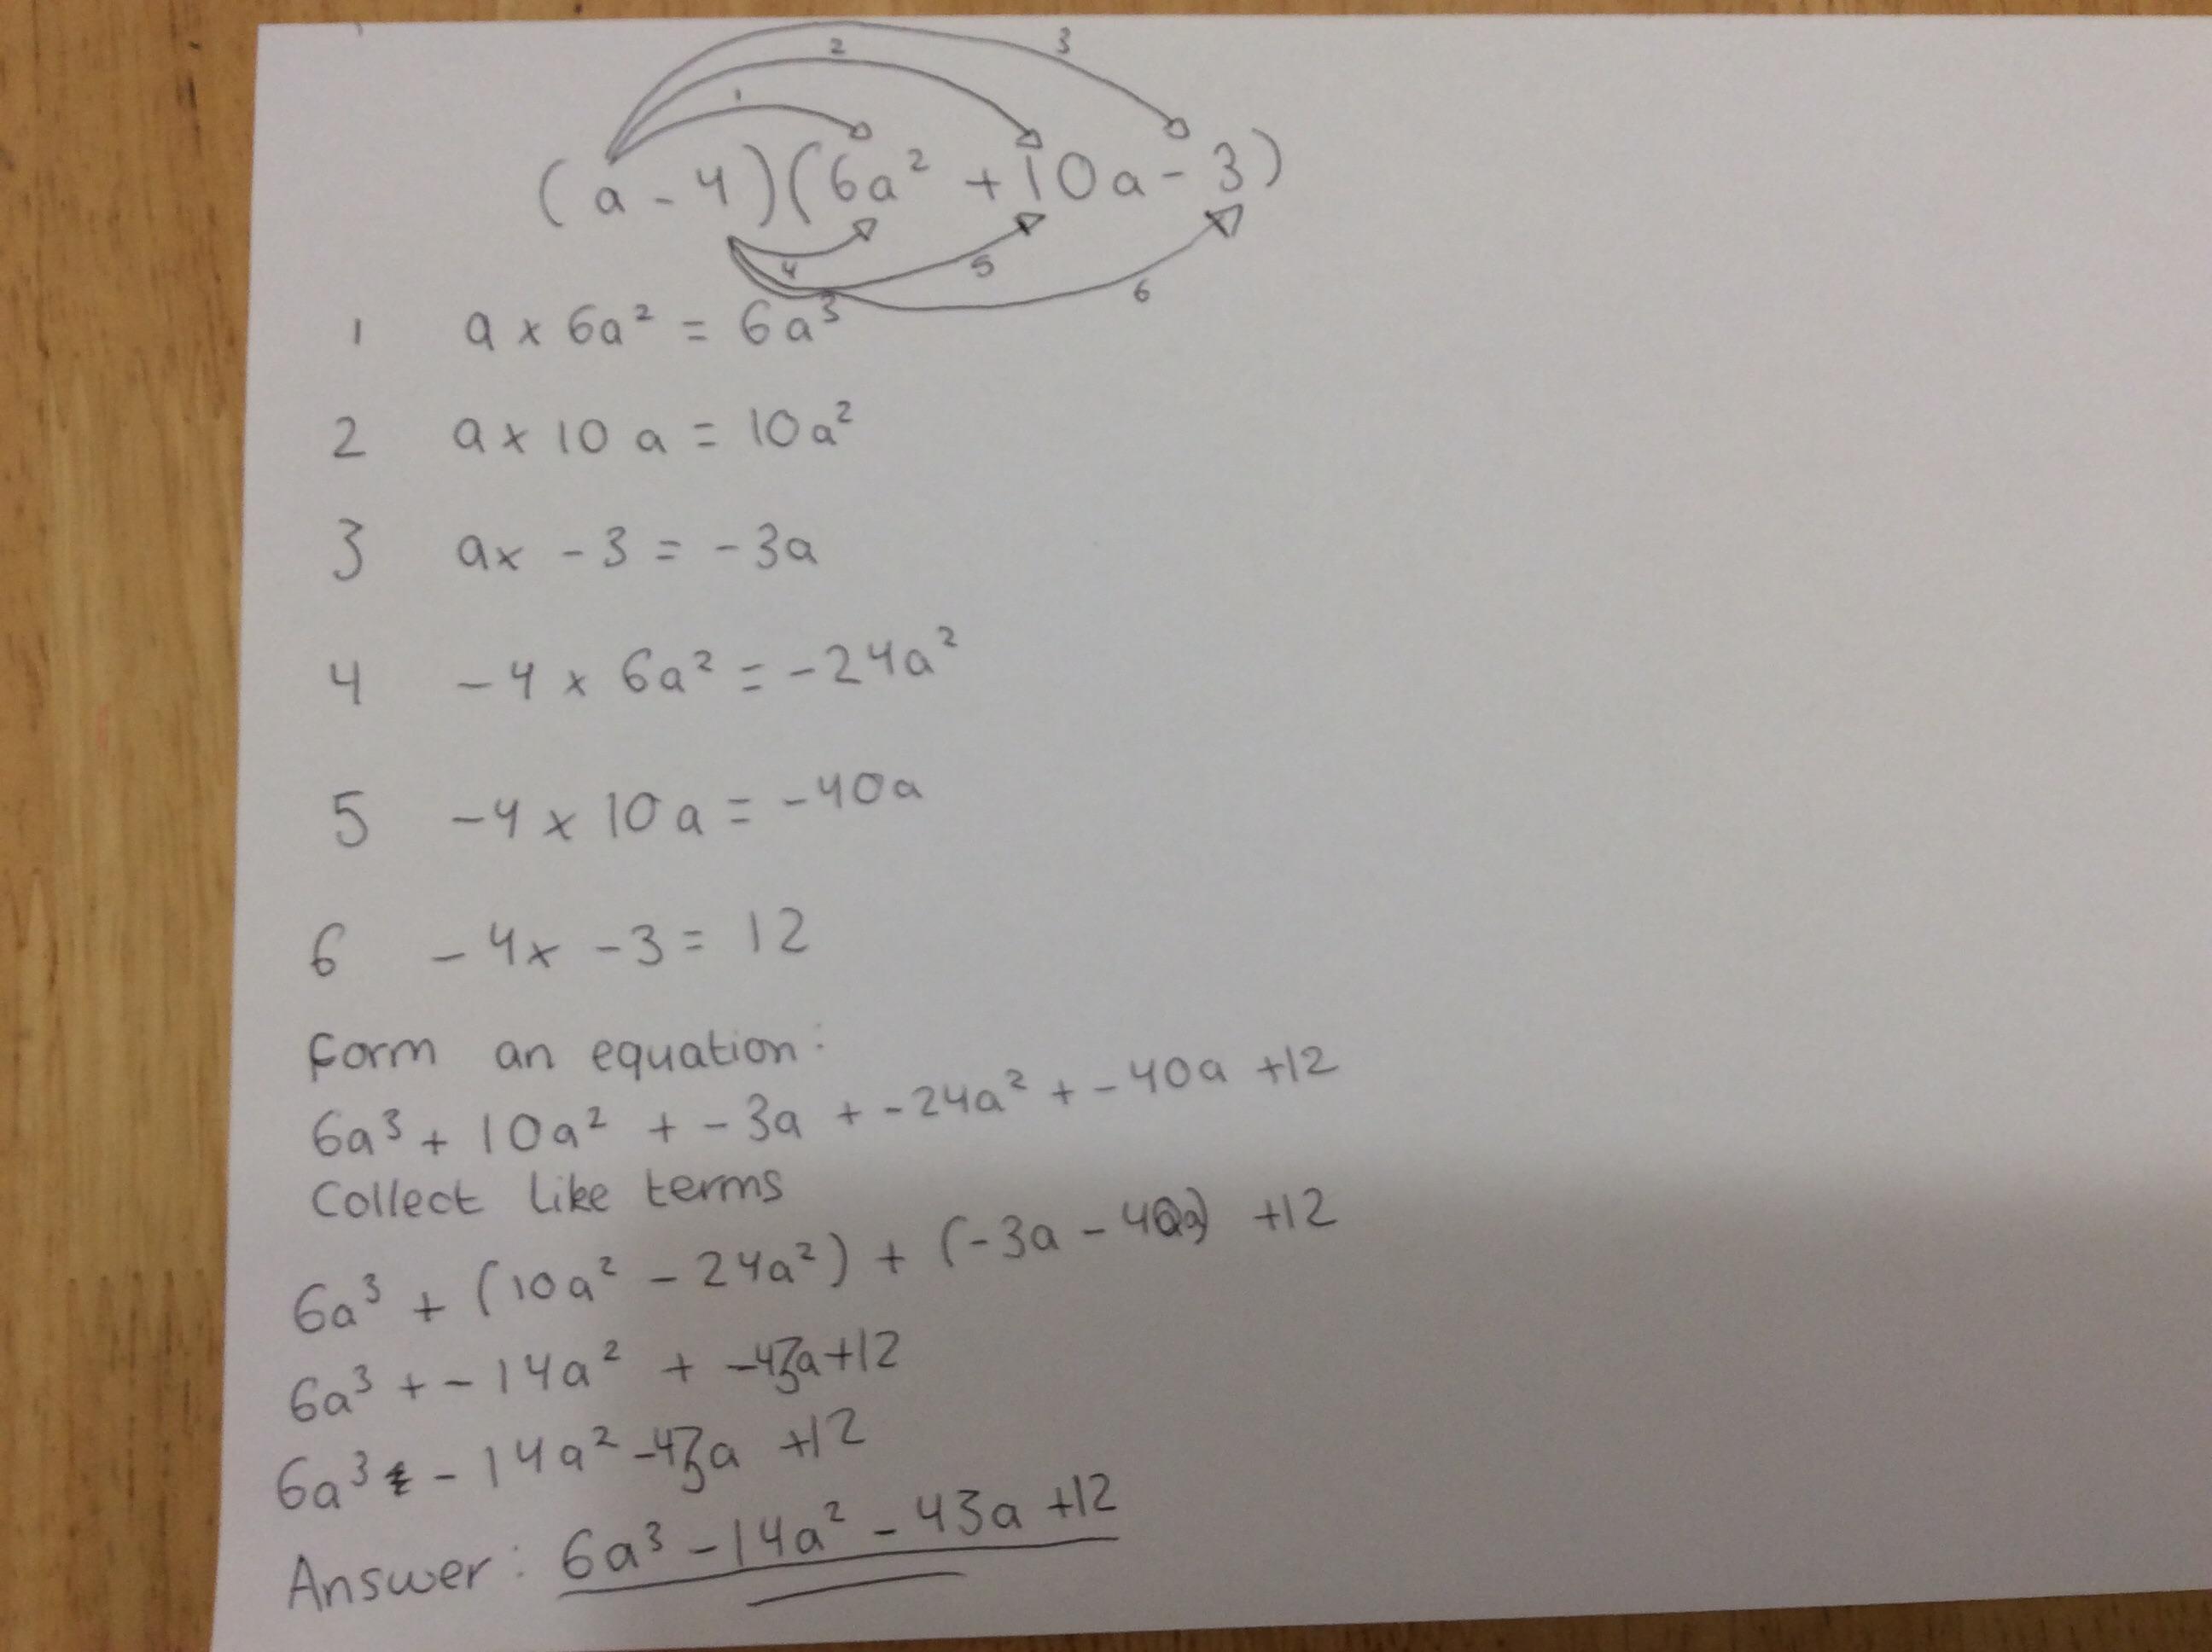 1 2 3
(a - 4)(6a² + 10a - 3)
4 5 6
1 a × 6a² = 6a³
2 a × 10a = 10a²
3 a× -3 = -3a
4 -4 × 6a² = -24a²
5 -4 × 10a = -40a
6 -4× -3 = 12
Form an equation:
6a³ + 10a² + -3a + -24a² + -40a +12
Collect like terms
6a³ + (10a² - 24a²) + (-3a - 40a) +12
6a³ + -14a² + -43a+12
6a³ - 14a² -43a +12
Answer: 6a³ -14a² - 43a +12